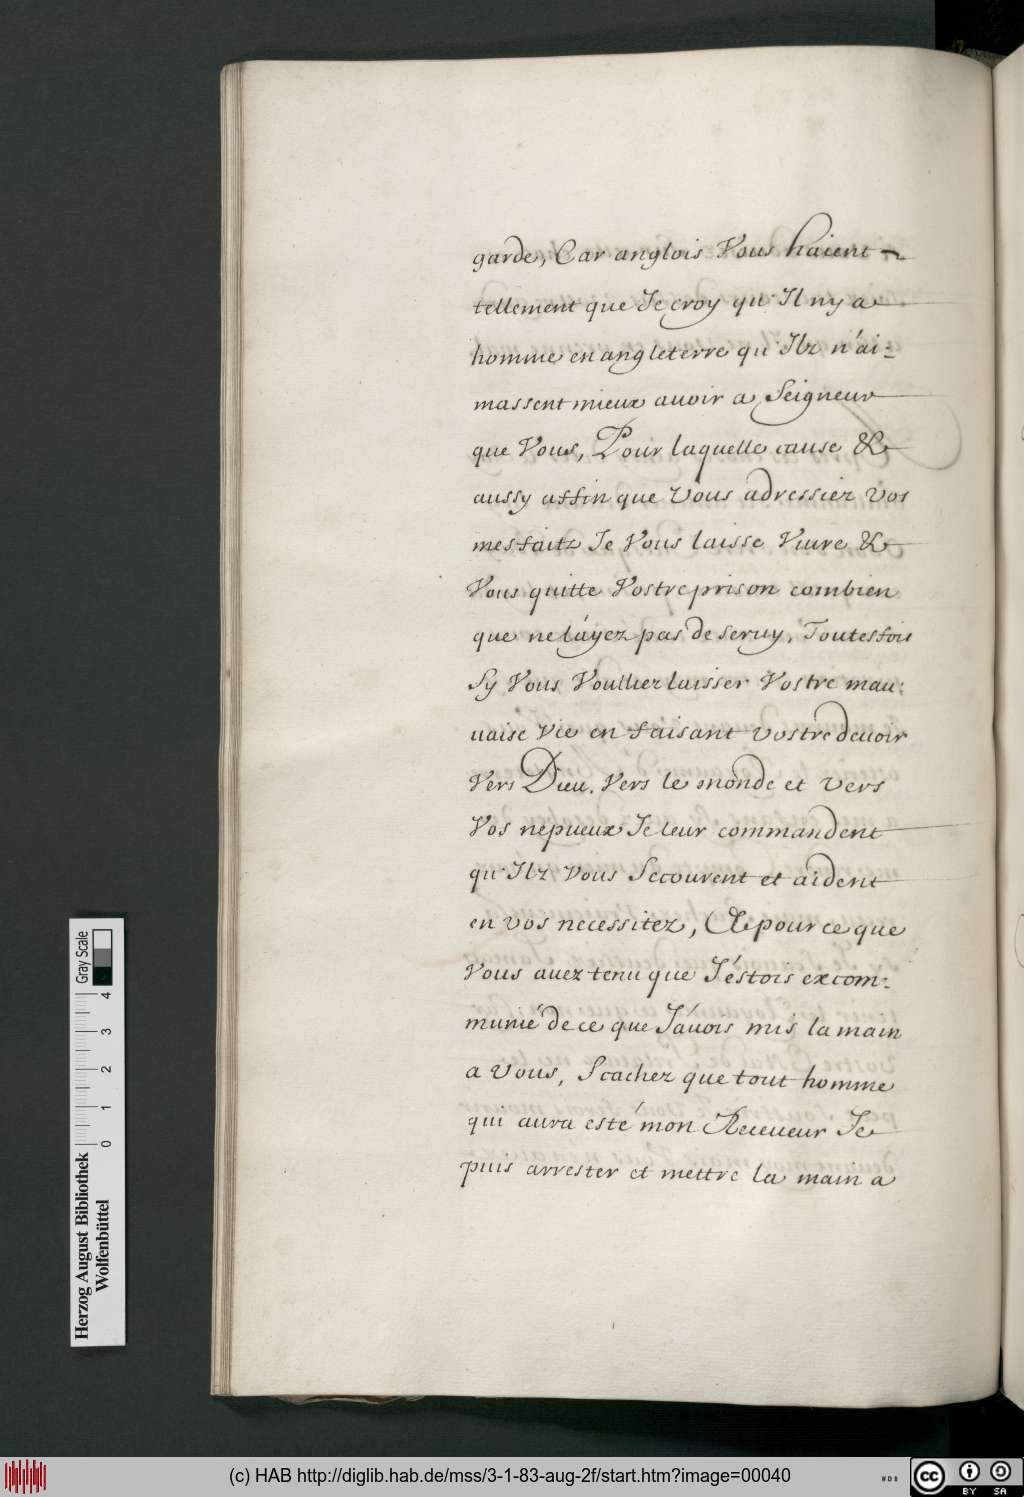 garde, Car anglois Vous haient
tellement que Je croy qu'Il ny a
homme en angleterre qu'Ilz n'ai-
massent mieux auoir a Seigneur
que Vous, Pour laquelle cause &
aussy affin que vous adressiez vos
mesfaitz Je Vous laisse Viure &
Vous quitte Vostre prison combien
que ne láyez pas deseruy, Toutesfois
Sy Vous Voulliez laisser Vostre mau:
uaise vie en faisant vostre deuoir
Vers Dieu. Vers le monde et vers
Vos nepueux Je leur commandent
qu'Ilz vous Secourent et aident
en vos necessitez, & pour ce que
Vous auez tenu que J'éstois excom:
munié de ce que J'áuois mis la main
a vous, Scachez que tout homme
qui aura esté mon Receueur Je
puis arrester et mettre la main a
Herzog August Bibliothek
Wolfenbüttel
0 1 2 3 4
Gray Scale
(c) HAB http://diglib.hab.de/mss/3-1-83-aug-2f/start.htm?image=00040
WDB
cc
BY SA